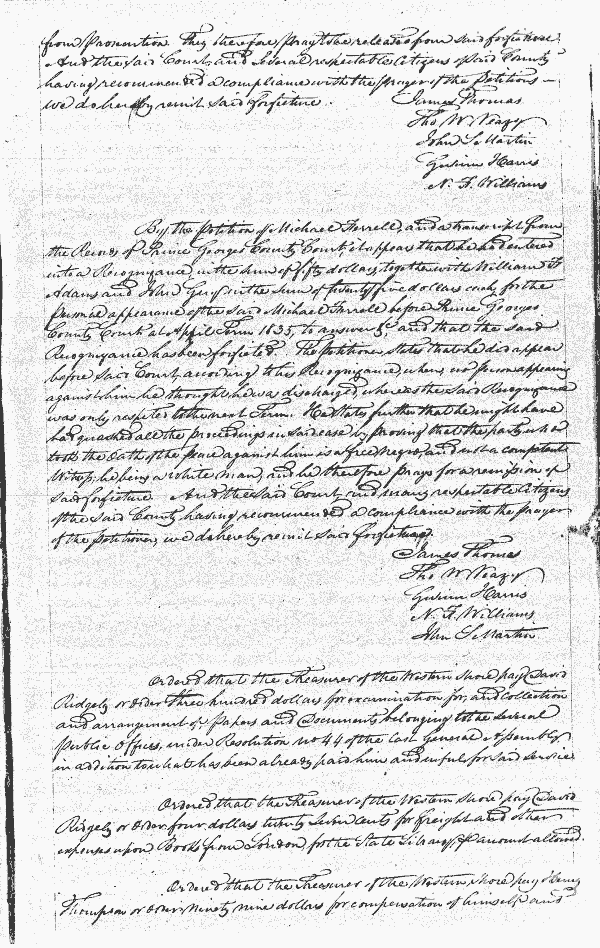 from Prosecution They therefore, pray to be released from said forfeiture.
And the said Court, and several respectable Citizens of said County
having recommended a compliance with the prayer of the Petitions —
we do hereby remit said forfeiture.
James Thomas
Tho W Veazy
John S Martin
Gwinn Harris
N. F. Williams
By the Petition of Michael Ferrell, and a transcript from
the Records of Prince Georges County Court, it appears that he had entered
into a Recognizance, in the sum of fifty dollars, together with William F
Adams and John in the sum of twenty five dollars each, for the
personal appearance of the said Michael Ferrell before Prince Georges
County Court at April Term 1835, to answer &c and that the said
Recognizance has been forfeited. The Petitioner States that he did appear
before said Court, according to his Recognizance, when, no person appearing
against him, he thought he was discharged, whereas the said Recognizance
was only respited to the next Term. He states further that he might have
had quashed all the proceedings in said case by proving that the party who
took the Oath of the peace against him is a Free Negro, and not a competent
Witness, he being a white man, and he therefore prays for a remission of
said forfeiture And the said Court, and many respectable Citizens
of the said County having recommended a compliance with the prayer
of the petitioner, we do hereby remit said forfeiture.
James Thomas
Tho W Veazy
Gwinn Harris
N. F. Williams
John S Martin
Ordered that the Treasurer of the Western Shore pay David
Ridgely or order three hundred dollars for examination for, and collection
and arrangement of Papers and Documents belonging to the several
public Offices, under Resolution No 44 of the last General Assembly,
in addition to what has been already paid him and in full for said service
Ordered that the Treasurer of the Western Shore pay David
Ridgely or order four dollars twenty seven cents for freight and other
expenses upon Books from London, for the State Library amount allowed.
Ordered that the Treasurer of the Western Shore pay Henry
Thompson or order ninety nine dollars for compensation of himself and